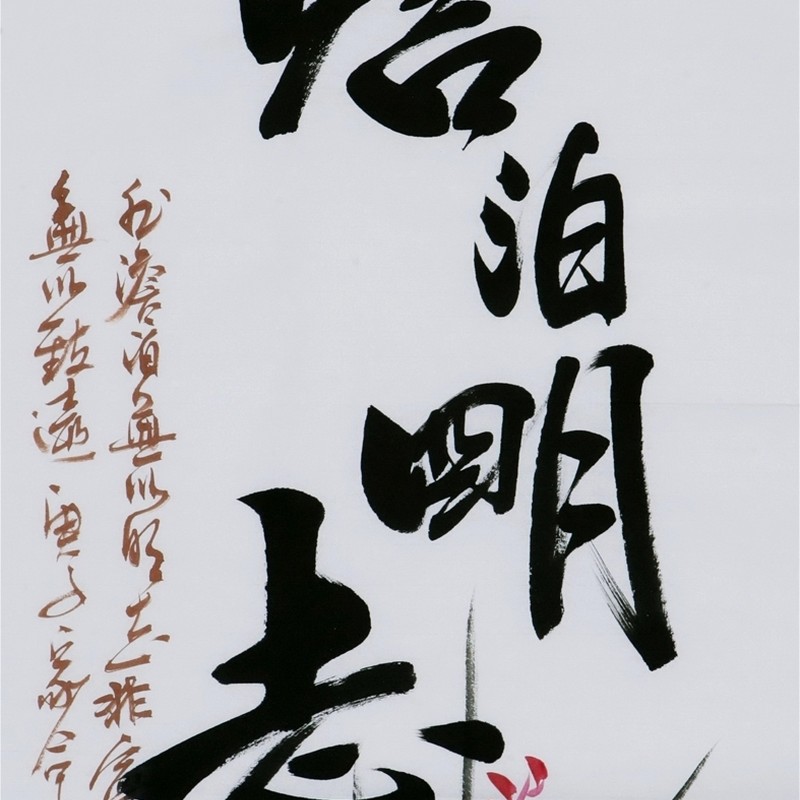 澹泊明志
非澹泊無以明志非寧
無以致遠庚子